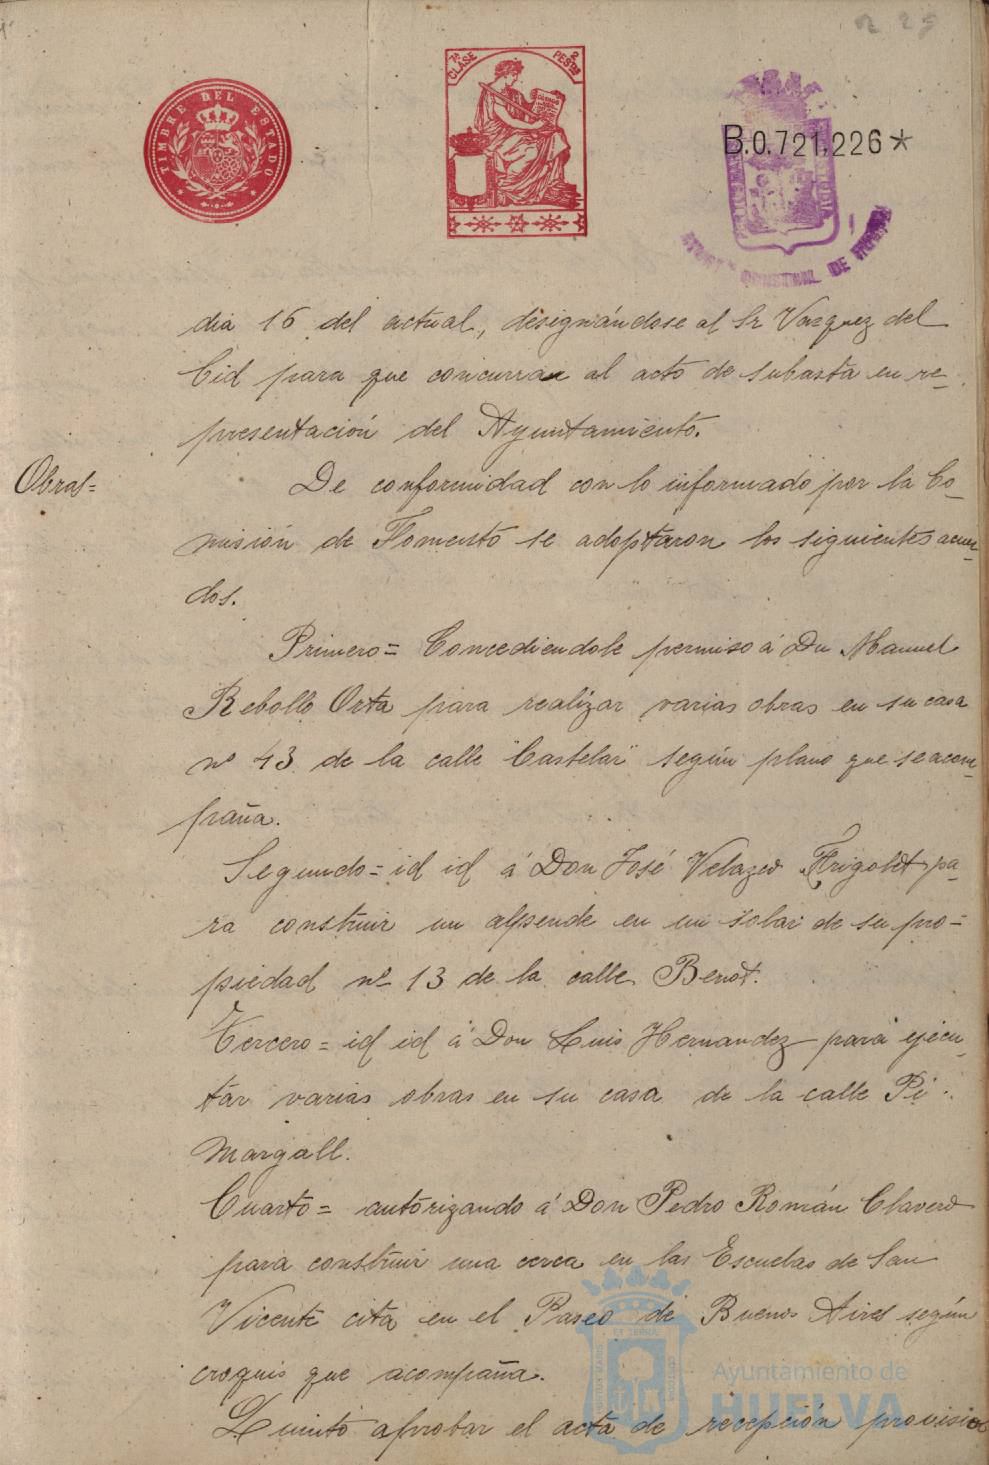 229
TIMBRE DEL ESTADO
7ª CLASE
2 PESTAS
B.0.721,226*
AYUNTº CONSTNAL DE HUELVA
dia 16 del actual, designándose al Sr Vazquez del
Cid para que concurran al acto de subasta en re-
presentación del Ayuntamiento.
Obras=
De conformidad con lo informado por la Co-
misión de Fomento se adoptaron los siguientes acuer-
dos.
Primero= Concediendole permiso á Dn Manuel
Rebollo Orta para realizar varias obras en su casa
nº 43 de la calle "Castelar" según plano que se acom-
paña.
Segundo= id id á Don José Velazco Frigolet pa-
ra construir un alpende en un solar de su pro=
piedad nº 13 de la calle Benot.
Tercero= id id á Don Luis Hernandez para ejecu-
tar varias obras en su casa de la calle Pi
Margall.
Cuarto= autorizando á Don Pedro Román Clavero
para construir una cerca en las Escuelas de San
Vicente cita en el Paseo de Buenos Aires según
croquis que acompaña.
Quinto aprobar el acta de recepción provisio
Ayuntamiento de
HUELVA